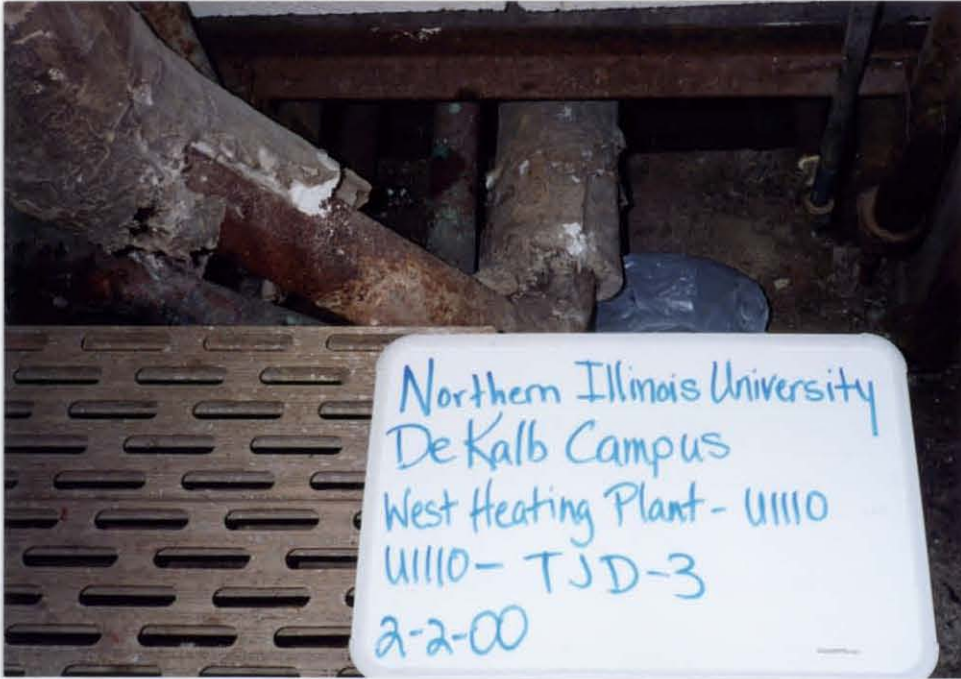 Northern Illinois University
DeKalb Campus
West Heating Plant - U1110
U1110 - TJD-3
2-2-00